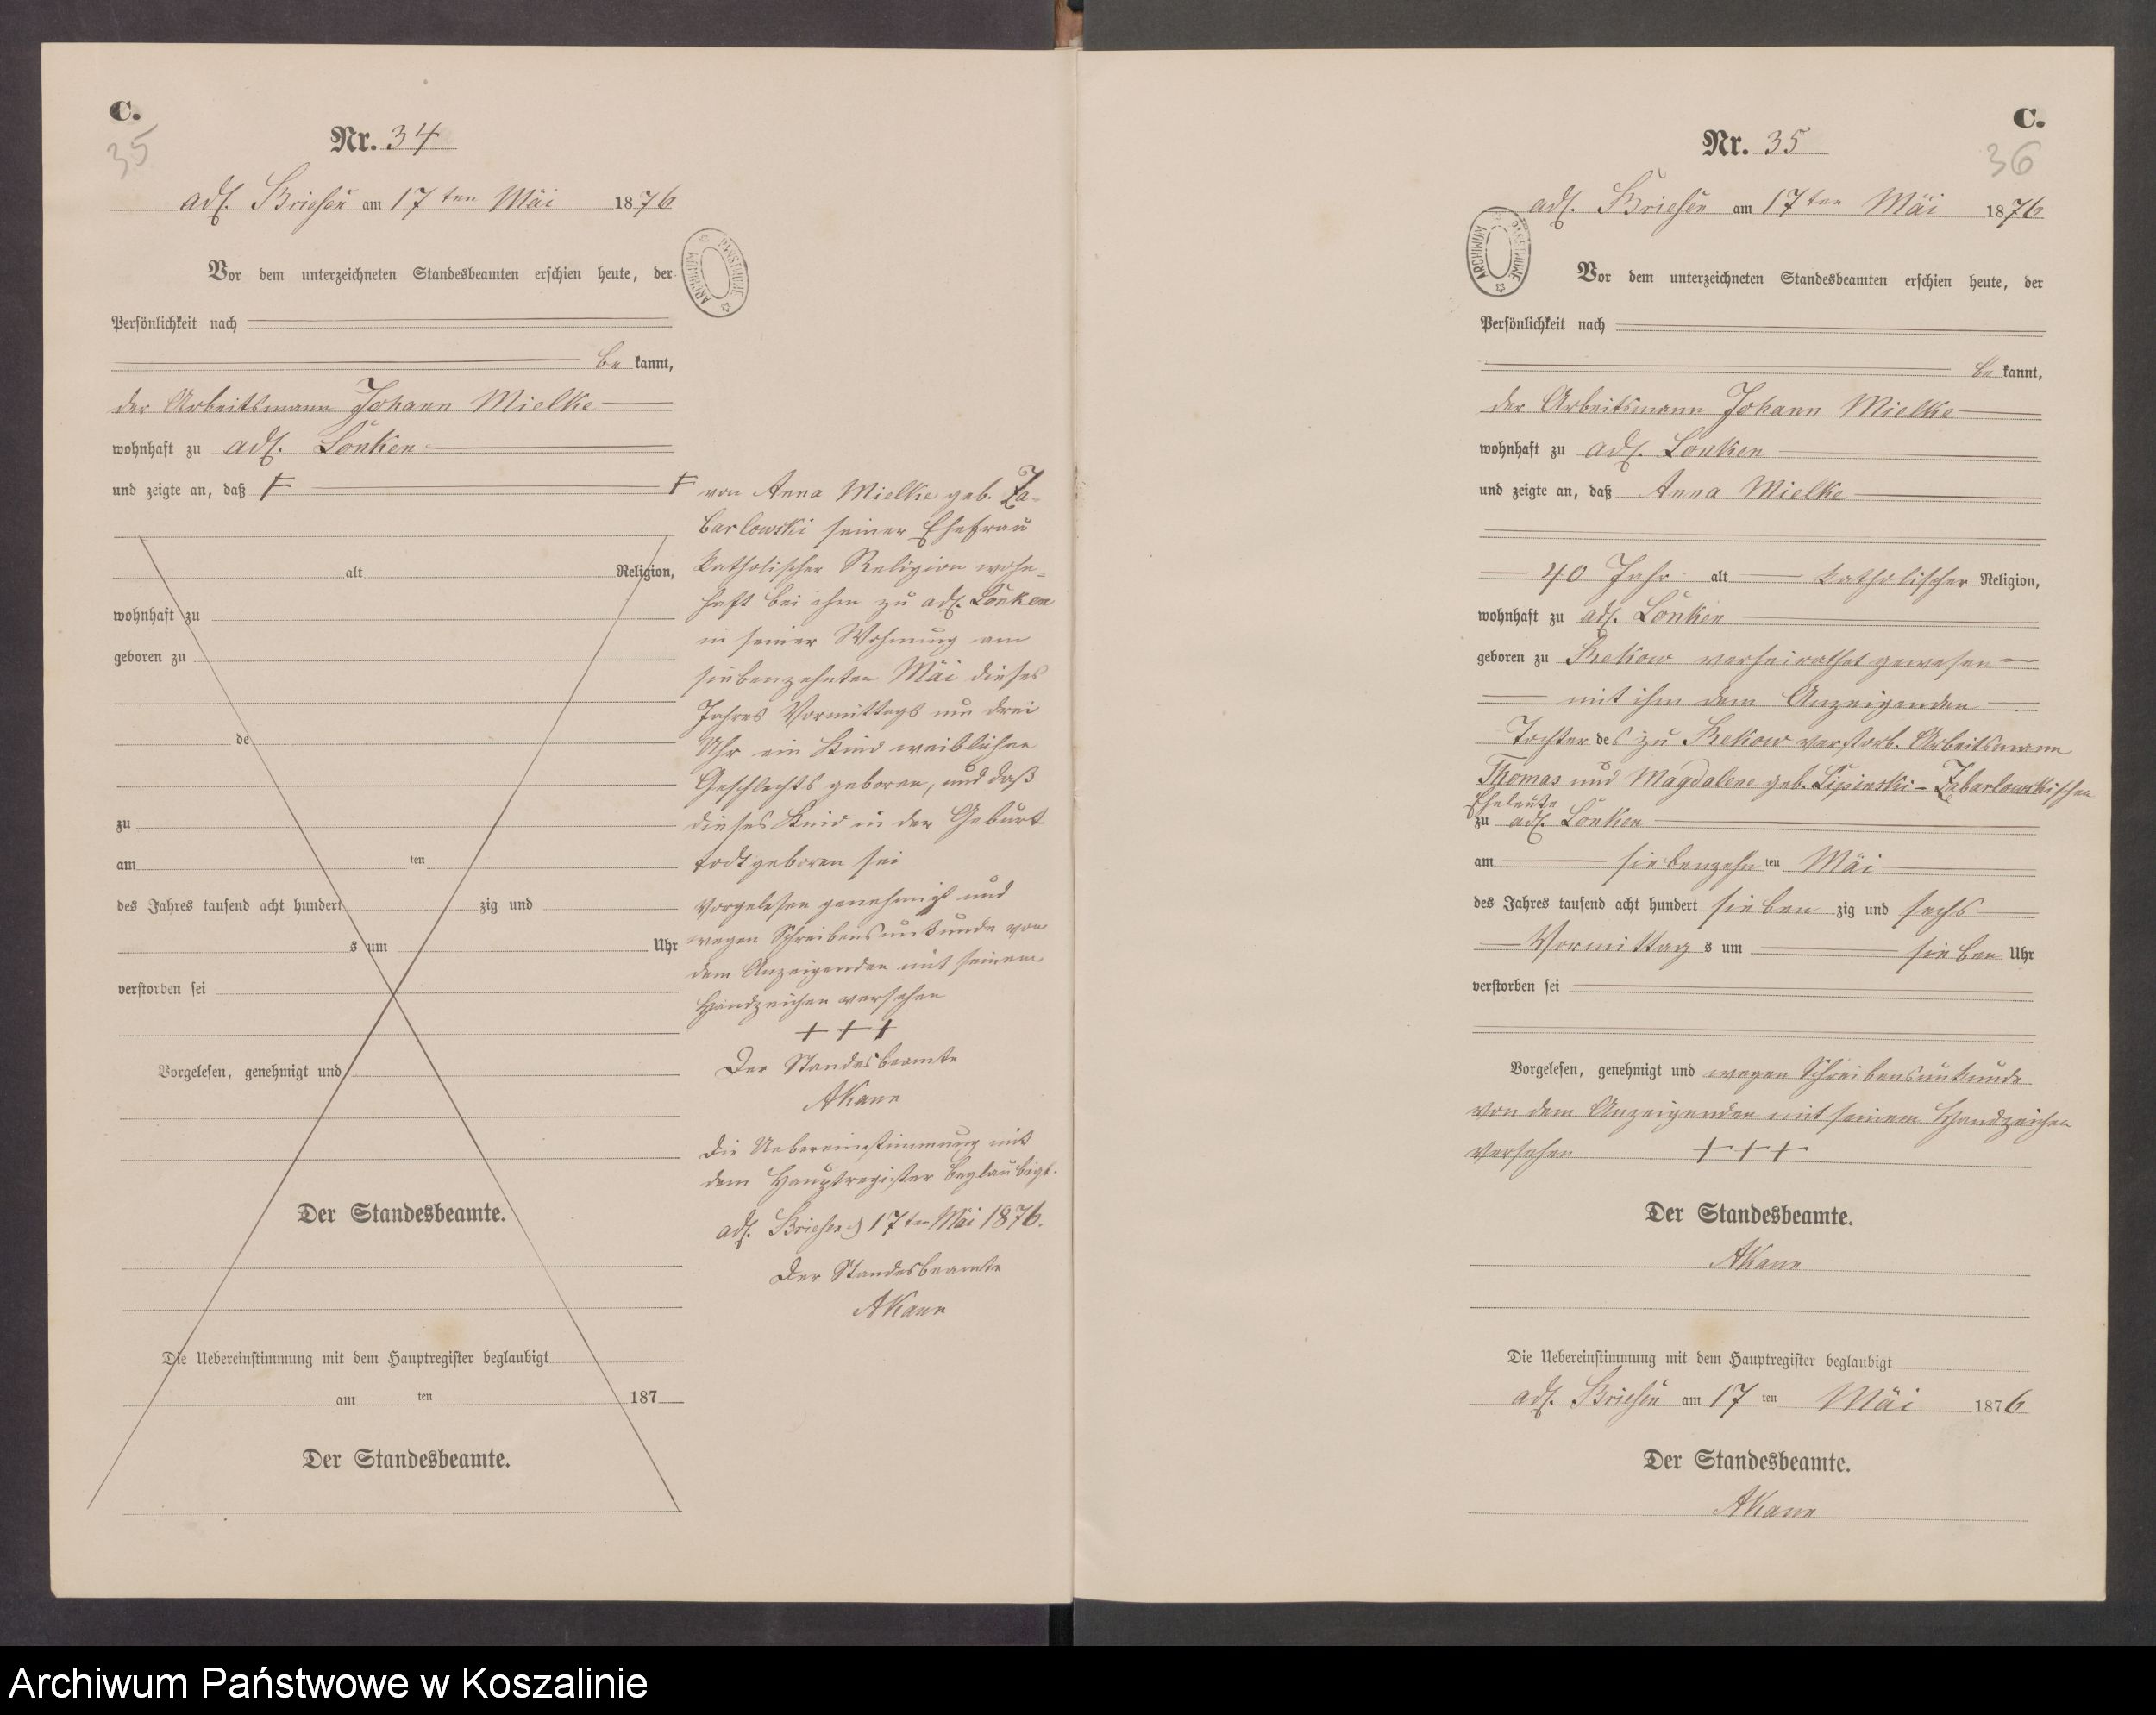 C.
35
Nr. 34
adl. Briesen am 17ten Mai 1876
Vor dem unterzeichneten Standesbeamten erschien heute, der
Persönlichkeit nach
be kannt,
der Arbeitsmann Johann Mielke
wohnhaft zu adl. Lonken
und zeigte an, daß
alt Religion,
wohnhaft zu
geboren zu
de
zu
am ten
des Jahres tausend acht hundert zig und
s um Uhr
verstorben sei
Vorgelesen, genehmigt und
Der Standesbeamte.
Die Uebereinstimmung mit dem Hauptregister beglaubigt
am ten 187
Der Standesbeamte.
ARCHIWUM PAŃSTWOWE
von Anna Mielke geb. Za-
barlowski seiner Ehefrau
katholischer Religion wohn-
haft bei ihm zu adl. Lonken
in seiner Wohnung am
siebenzehnten Mai dieses
Jahres Vormittags um drei
Uhr ein Kind weiblichen
Geschlechts geboren, und daß
dieses Kind in der Geburt
todtgeboren sei
Vorgelesen genehmigt und
wegen Schreibensunkunde von
dem Anzeigenden mit seinem
Handzeichen versehen
+ + +
Der Standesbeamte
AKann
Die Uebereinstimmung mit
dem Hauptregister beglaubigt.
adl. Briesen 17ten Mai 1876.
Der Standesbeamte
AKann
C.
36
Nr. 35
adl. Briesen am 17ten Mai 1876
ARCHIWUM PAŃSTWOWE
Vor dem unterzeichneten Standesbeamten erschien heute, der
Persönlichkeit nach
be kannt,
der Arbeitsmann Johann Mielke
wohnhaft zu adl. Lonken
und zeigte an, daß Anna Mielke
40 Jahr alt katholischer Religion,
wohnhaft zu adl. Lonken
geboren zu Rekow verheirathet gewesen
mit ihm dem Anzeigenden
Tochter des zu Rekow verstorb. Arbeitsmann
Thomas und Magdalene geb. Lipinski - Zabarlowskischen
Eheleute
zu adl. Lonken
am siebenzehn ten Mai
des Jahres tausend acht hundert sieben zig und sechs
Vormittag s um sieben Uhr
verstorben sei
Vorgelesen, genehmigt und wegen Schreibensunkunde
von dem Anzeigenden mit seinem Handzeichen
versehen + + +
Der Standesbeamte.
AKann
Die Uebereinstimmung mit dem Hauptregister beglaubigt
adl. Briesen am 17 ten Mai 1876
Der Standesbeamte.
AKann
Archiwum Państwowe w Koszalinie